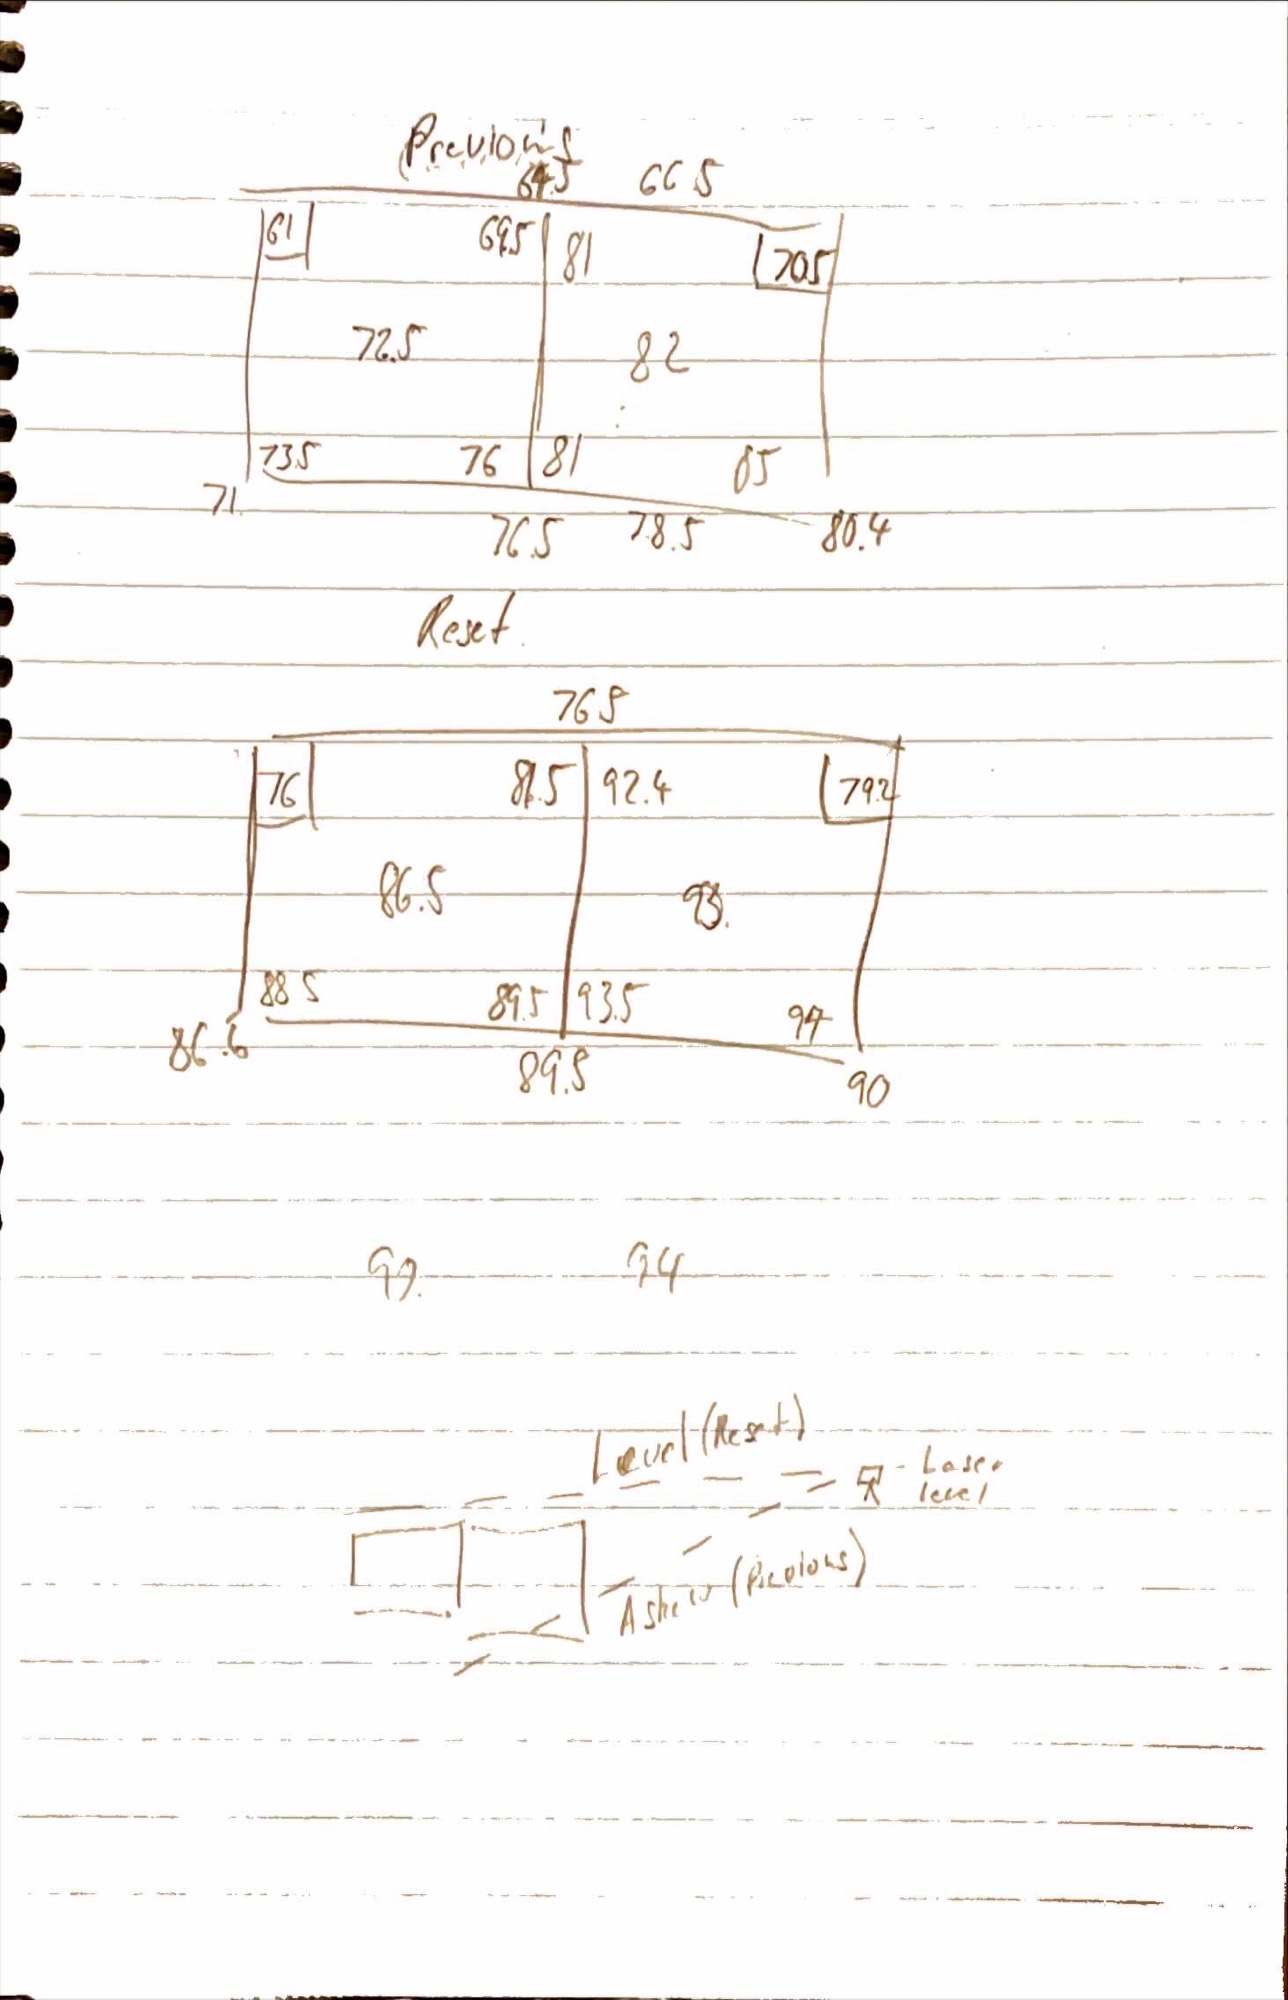 Previous
64.5 66 5
61 69.5 81 70.5
72.5 82
73.5 76 81 85
71. 76.5 78.5 80.4
Reset.
76 5
76 81.5 92.4 79.2
86.5 93.
88 5 89.5 93.5 94
86.6 89.5 90
94
Level (Reset)
- Laser
level
Askew (Previous)